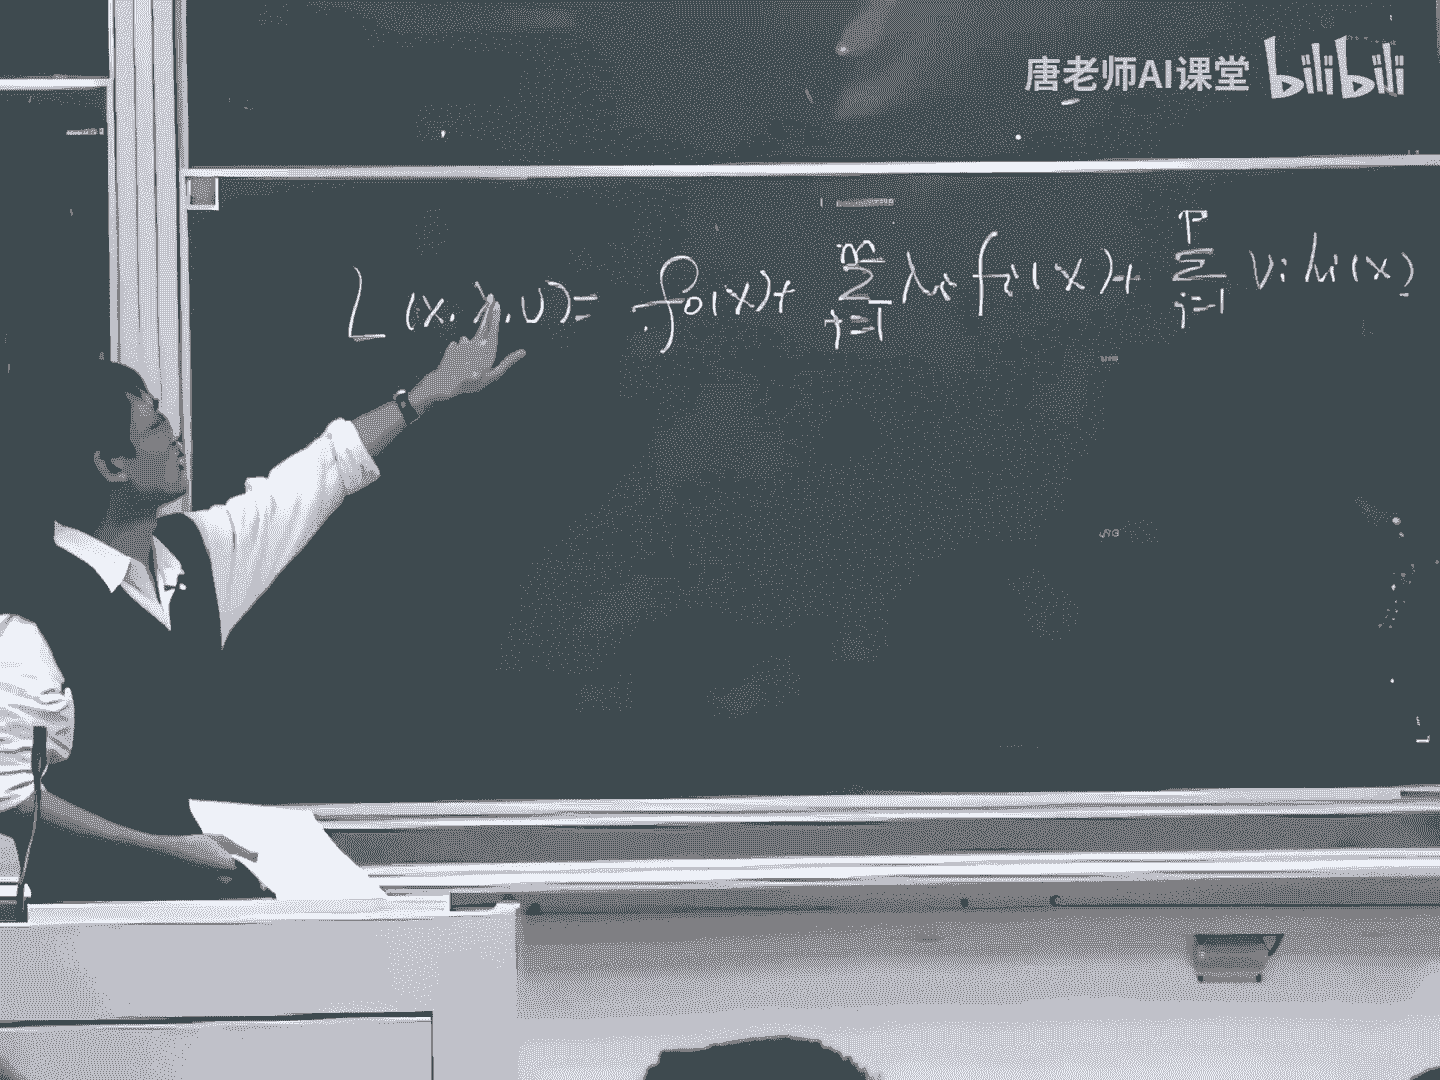 唐老师AI课堂 bilibili
L(x, λ, υ) = f₀(x) + ∑_{i=1}^{m} λᵢ fᵢ(x) + ∑_{i=1}^{p} νᵢ hᵢ(x)